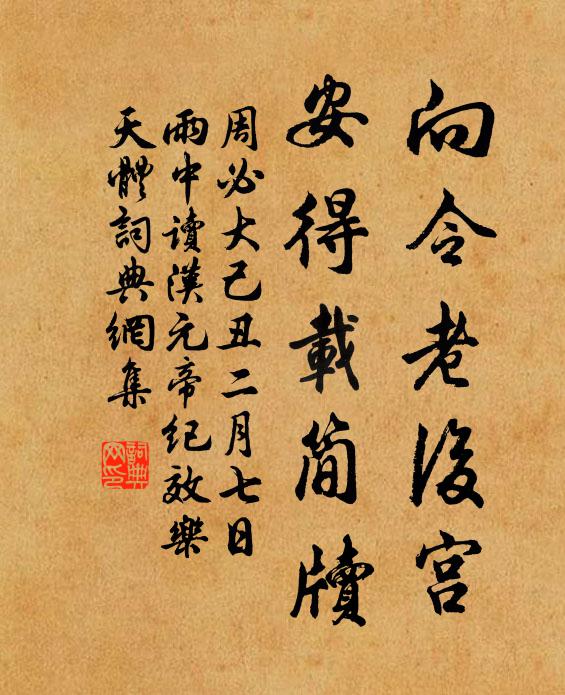 向令老後宮
安得載簡牘
周必大己丑二月七日
雨中讀漢元帝紀效樂
天體詞典網集
詞典網印